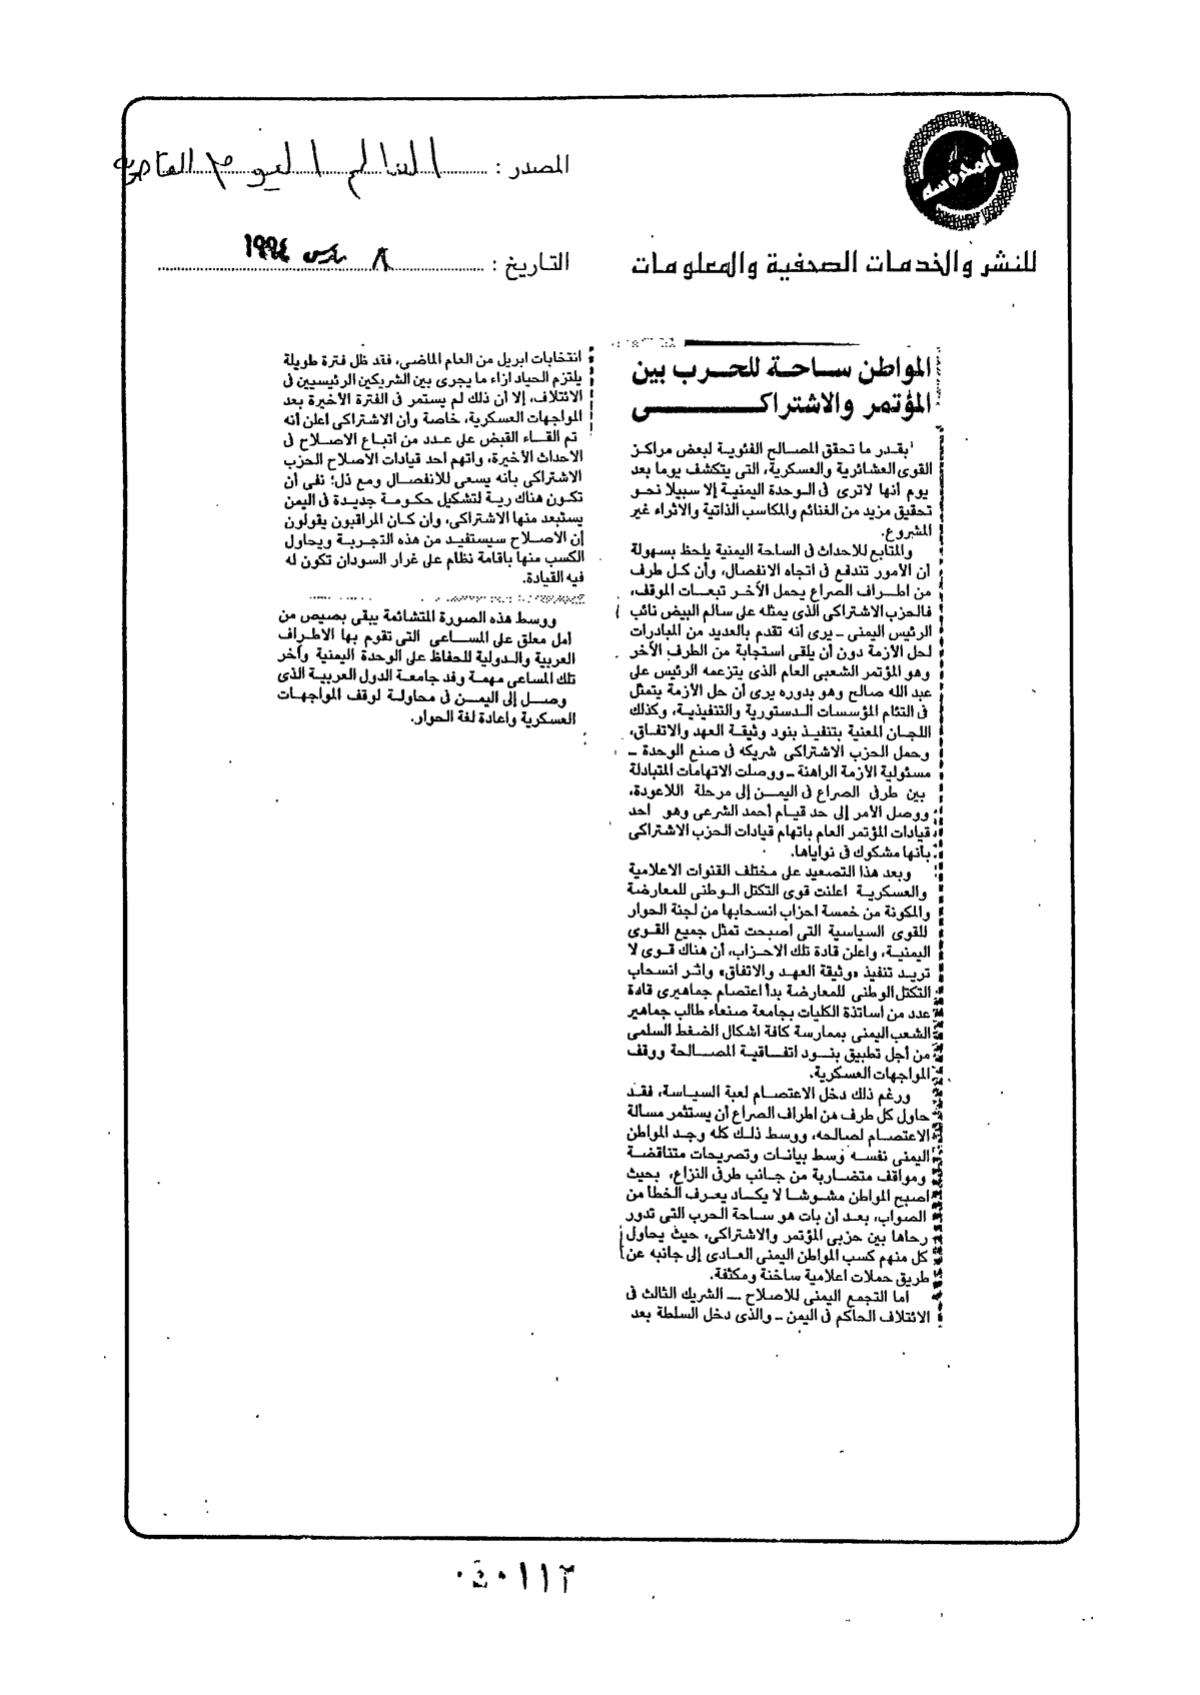 المدوسه
المصدر : العالم اليوم القاهرية
للنشر والخدمات الصحفية والمعلومات
التاريخ : ٨ مارس ١٩٩٤
المواطن ساحة للحرب بين
المؤتمر والاشتراكى
بقدر ما تحقق المصالح الفئوية لبعض مراكز
القوى العشائرية والعسكرية، التى يتكشف يوما بعد
يوم أنها لاترى فى الوحدة اليمنية إلا سبيلا نحو
تحقيق مزيد من الغنائم والمكاسب الذاتية والاثراء غير
المشروع.
والمتابع للاحداث فى الساحة اليمنية يلحظ بسهولة
أن الأمور تندفع فى اتجاه الانفصال، وأن كل طرف
من اطراف الصراع يحمل الآخر تبعات الموقف،
فالحزب الاشتراكى الذى يمثله على سالم البيض نائب
الرئيس اليمنى ـ يرى أنه تقدم بالعديد من المبادرات
لحل الأزمة دون أن يلقى استجابة من الطرف الآخر
وهو المؤتمر الشعبى العام الذى يتزعمه الرئيس على
عبد الله صالح وهو بدوره يرى أن حل الأزمة يتمثل
فى التئام المؤسسات الدستورية والتنفيذية، وكذلك
اللجان المعنية بتنفيذ بنود وثيقة العهد والاتفاق،
وحمل الحزب الاشتراكى شريكه فى صنع الوحدة ـ
مسئولية الأزمة الراهنة ـ ووصلت الاتهامات المتبادلة
بين طرفى الصراع فى اليمن إلى مرحلة اللاعودة،
ووصل الأمر إلى حد قيام أحمد الشرعى وهو احد
قيادات المؤتمر العام باتهام قيادات الحزب الاشتراكى
بانها مشكوك فى نواياها.
وبعد هذا التصعيد على مختلف القنوات الاعلامية
والعسكرية اعلنت قوى التكتل الوطنى للمعارضة
والمكونة من خمسة احزاب انسحابها من لجنة الحوار
للقوى السياسية التى اصبحت تمثل جميع القوى
اليمنية، واعلن قادة تلك الاحزاب، أن هناك قوى لا
تريد تنفيذ «وثيقة العهد والاتفاق» واثر انسحاب
التكتل الوطنى للمعارضة بدأ اعتصام جماهيرى قادة
عدد من اساتذة الكليات بجامعة صنعاء طالب جماهير
الشعب اليمنى بممارسة كافة اشكال الضغط السلمى
من أجل تطبيق بنود اتفاقية المصالحة ووقف
المواجهات العسكرية.
ورغم ذلك دخل الاعتصام لعبة السياسة، فقد
حاول كل طرف من اطراف الصراع أن يستثمر مسالة
الاعتصام لصالحه، ووسط ذلك كله وجد المواطن
اليمنى نفسه وسط بيانات وتصريحات متناقضة
ومواقف متضاربة من جانب طرفى النزاع، بحيث
اصبح المواطن مشوشا لا يكاد يعرف الخطأ من
الصواب، بعد أن بات هو ساحة الحرب التى تدور
رحاها بين حزبى المؤتمر والاشتراكى، حيث يحاول
كل منهم كسب المواطن اليمنى العادى إلى جانبه عن
طريق حملات اعلامية ساخنة ومكثفة.
أما التجمع اليمنى للاصلاح ـ الشريك الثالث فى
الائتلاف الحاكم فى اليمن ـ والذى دخل السلطة بعد
انتخابات ابريل من العام الماضى، فقد ظل فترة طويلة
يلتزم الحياد ازاء ما يجرى بين الشريكين الرئيسيين فى
الائتلاف، إلا أن ذلك لم يستمر فى الفترة الأخيرة بعد
المواجهات العسكرية، خاصة وأن الاشتراكى اعلن أنه
تم القاء القبض على عدد من اتباع الاصلاح فى
الاحداث الأخيرة، واتهم احد قيادات الاصلاح الحزب
الاشتراكى بانه يسعى للانفصال ومع ذل؛ نفى أن
تكون هناك رية لتشكيل حكومة جديدة فى اليمن
يستبعد منها الاشتراكى، وان كان المراقبون يقولون
إن الاصلاح سيستفيد من هذه التجربة ويحاول
الكسب منها باقامة نظام على غرار السودان تكون له
فيه القيادة.
ووسط هذه الصورة المتشائمة يبقى بصيص من
أمل معلق على المساعى التى تقوم بها الاطراف
العربية والدولية للحفاظ على الوحدة اليمنية وآخر
تلك المساعى مهمة وفد جامعة الدول العربية الذى
وصل إلى اليمن فى محاولة لوقف المواجهات
العسكرية واعادة لغة الحوار.